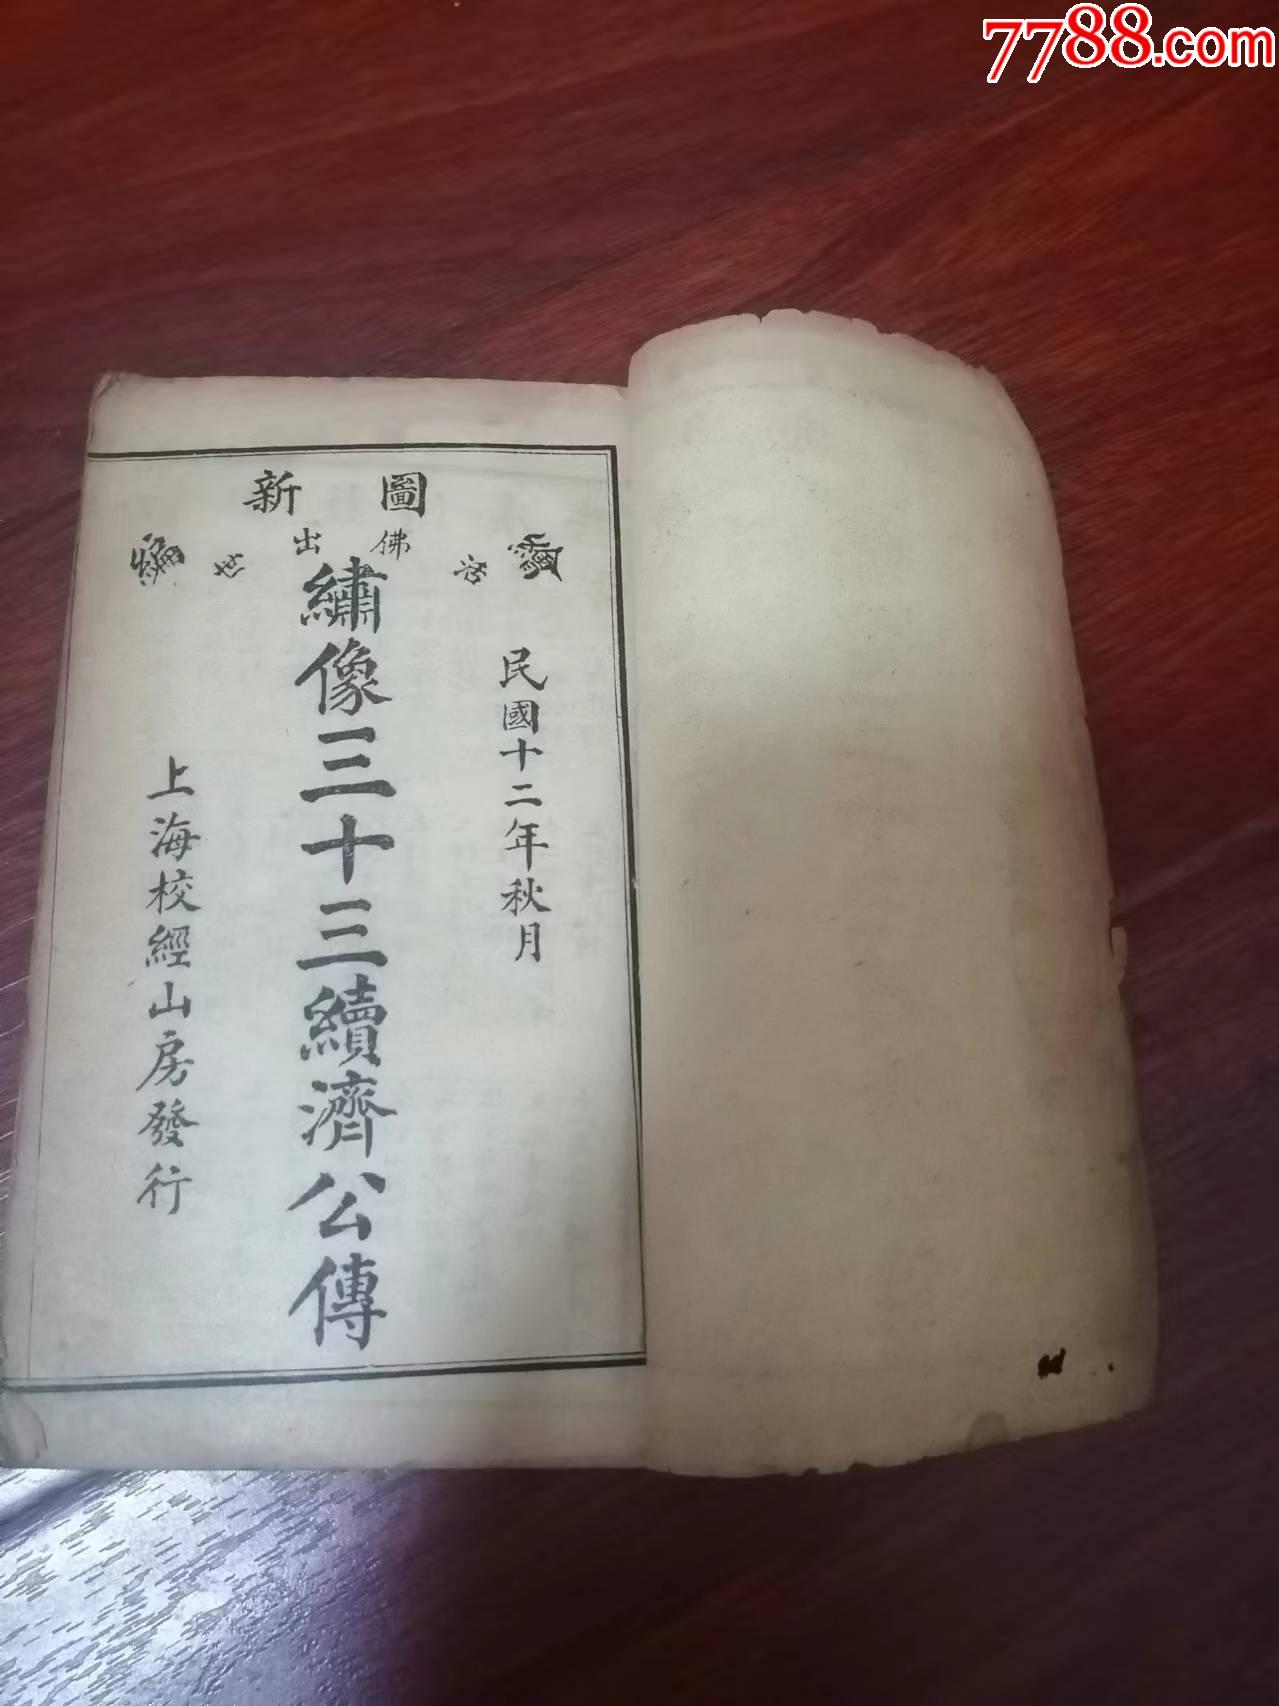 7788.com
繪圖新編
活佛出世
民國十二年秋月
繡像三十三續濟公傳
上海校經山房發行